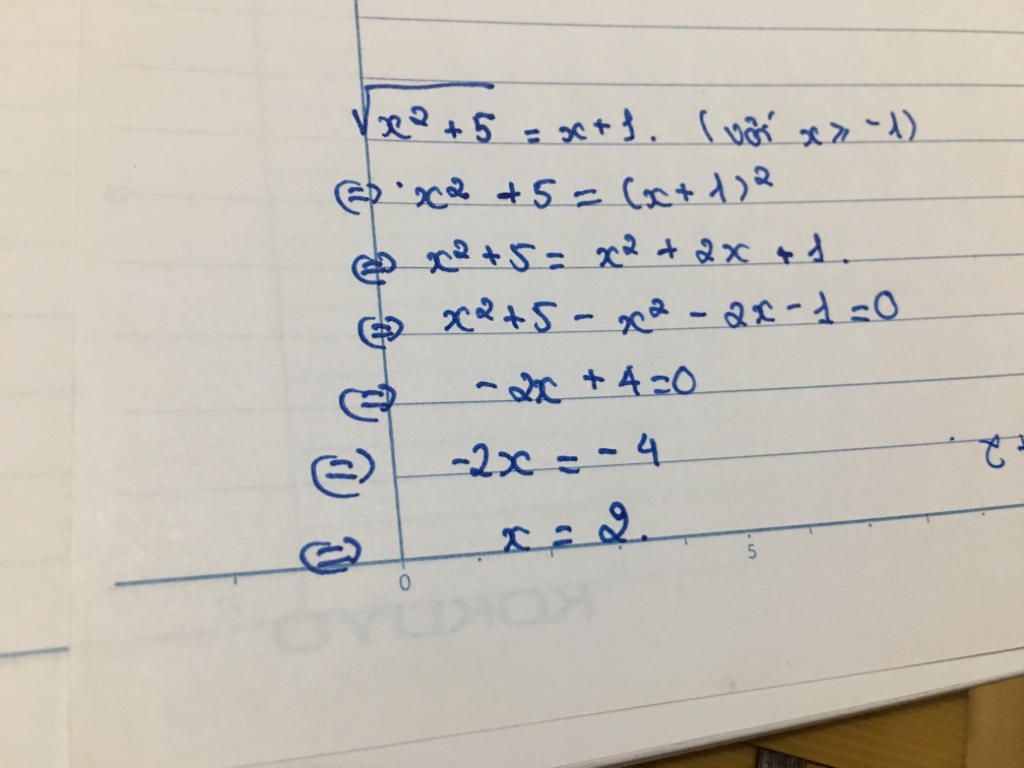 √x² + 5 = x + 1. (với x ≥ -1)
⇔ x² + 5 = (x + 1)²
⇔ x² + 5 = x² + 2x + 1.
⇔ x² + 5 - x² - 2x - 1 = 0
⇔ -2x + 4 = 0
⇔ -2x = -4
⇔ x = 2.
0 5
KOKUYO